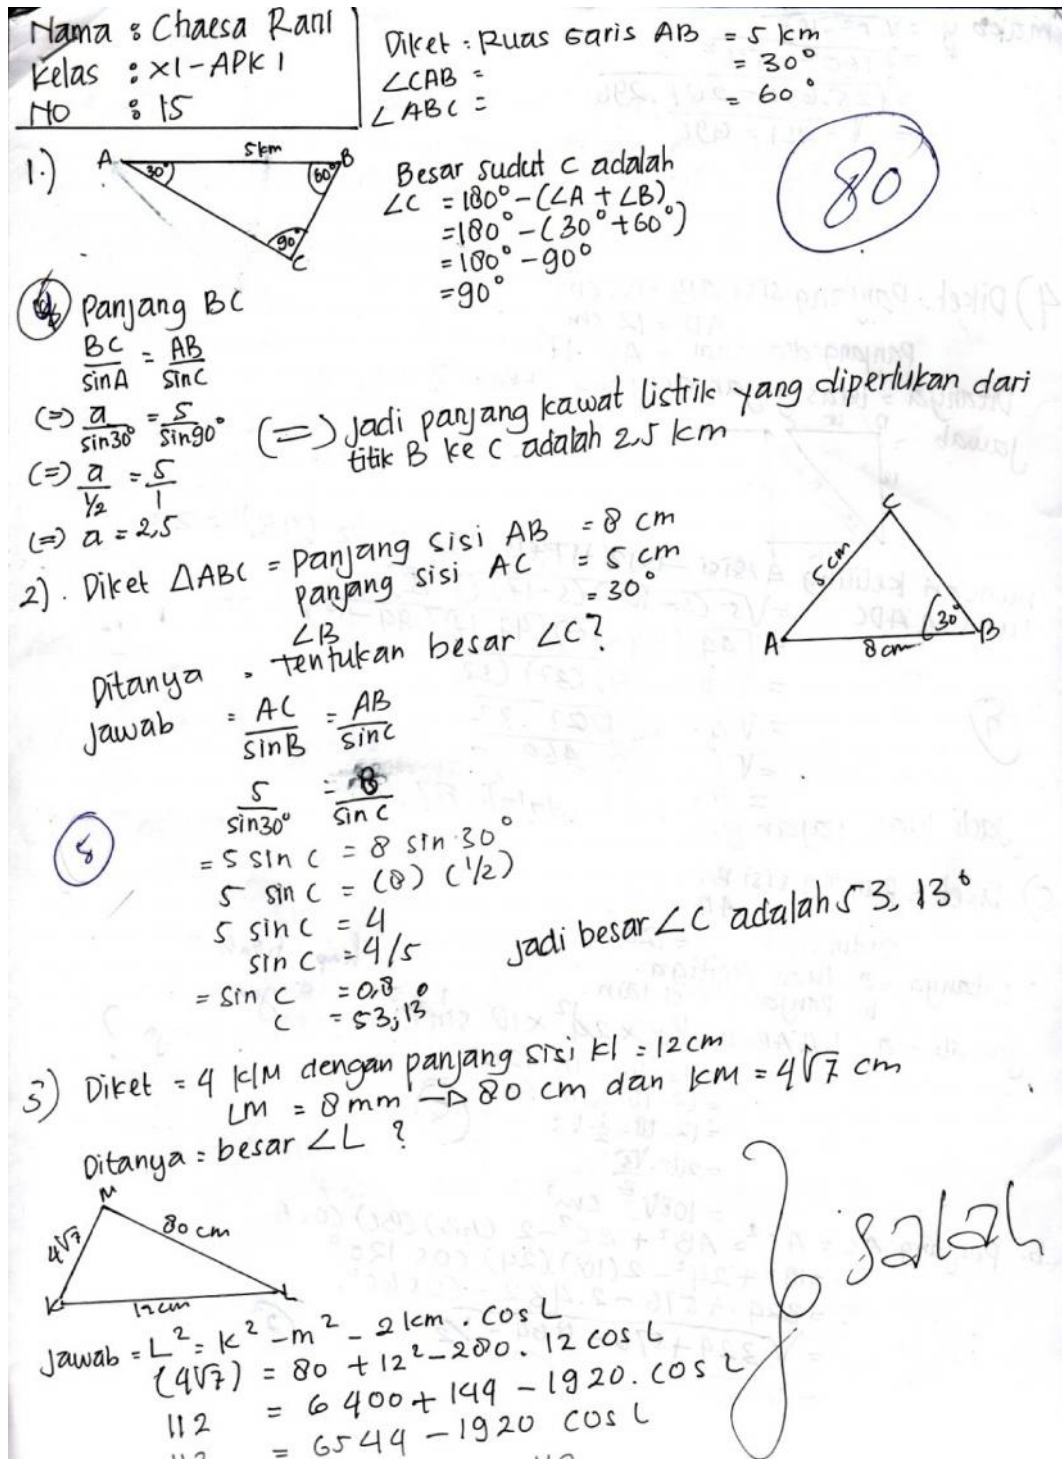 Nama : Chaesa Rani
Kelas : XI-APK 1
NO : 15
Diket : Ruas Garis AB = 5 km
∠CAB = = 30°
∠ABC = = 60°
80
1.)
A 5km B
30° 60°
90°
C
Besar sudut C adalah
∠C = 180° - (∠A + ∠B)
= 180° - (30° + 60°)
= 180° - 90°
= 90°
Panjang BC
BC/sin A = AB/sin C
(=) a/sin 30° = 5/sin 90°
(=) a/½ = 5/1
(=) a = 2,5
(=) Jadi panjang kawat listrik yang diperlukan dari
titik B ke C adalah 2,5 km
2). Diket ΔABC = Panjang sisi AB = 8 cm
panjang sisi AC = 5 cm
∠B = 30°
C
5 cm
30°
A 8 cm B
Ditanya = tentukan besar ∠C?
Jawab = AC/sin B = AB/sin C
5/sin 30° = 8/sin C
= 5 sin C = 8 sin 30°
5 sin C = (8) (1/2)
5 sin C = 4
sin C = 4/5
= sin C = 0,8
C = 53,13°
Jadi besar ∠C adalah 53,13°
3) Diket = 4 KlM dengan panjang sisi Kl = 12cm
LM = 8 mm → 80 cm dan KM = 4√7 cm
Ditanya = besar ∠L ?
M
4√7 80 cm
K L
12cm
salah
Jawab = L² = k² - m² - 2km . cos L
(4√7) = 80 + 12² - 280. 12 cos L
112 = 6400 + 144 - 1920. cos L
= 6544 - 1920 cos L